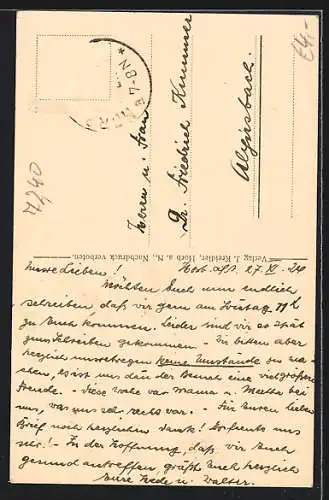 Herrn u. Frau
Dr. Friedrich Krummer
Alpirsbach.
7-8N
Verlag J. Kreidler, Horb a. N., Nachdruck verboten.
Horb a/N. 27. XI. 24
Unsre Lieben!
Möchten Euch nun endlich
schreiben daß wir gern am
zu Euch kommen. Leider sind wir so spät
zum Schreiben gekommen - Wir bitten aber
herzlich unsretwegen keine Umstände zu ma-
chen, es ist uns dann der Besuch eine viel größere
Freude. - Diese Woche war Mama u. Martha bei
uns, was uns sehr recht war. - Für Euren lieben
Brief noch herzlichen Dank! Er freute uns
sehr! - In der Hoffnung, daß wir Euch
gesund antreffen, grüßt Euch herzlich
Eure u. Walter.
7/240